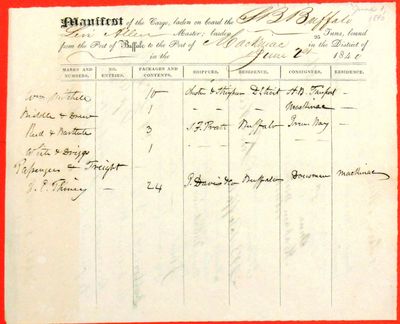 June 1, 1840
Manifest of the Cargo, laden on board the S B Buffalo
Levi Allen Master; burthen 95 Tons, bound
from the Port of Buffalo to the Port of Mackinac in the District of
in the June 1st 1840
MARKS AND NUMBERS. NO. ENTRIES. PACKAGES AND CONTENTS. SHIPPERS. RESIDENCE. CONSIGNEES. RESIDENCE.
Wm Mitchell 10 Detroit
Biddle & Drew 1 " " Mackinac -
Reed & 3 S. F. Pratt Buffalo Green Bay -
White & Driggs 1 - - - -
Passengers & Freight -
24 P. Davis & Co Buffalo Dousman Mackinac